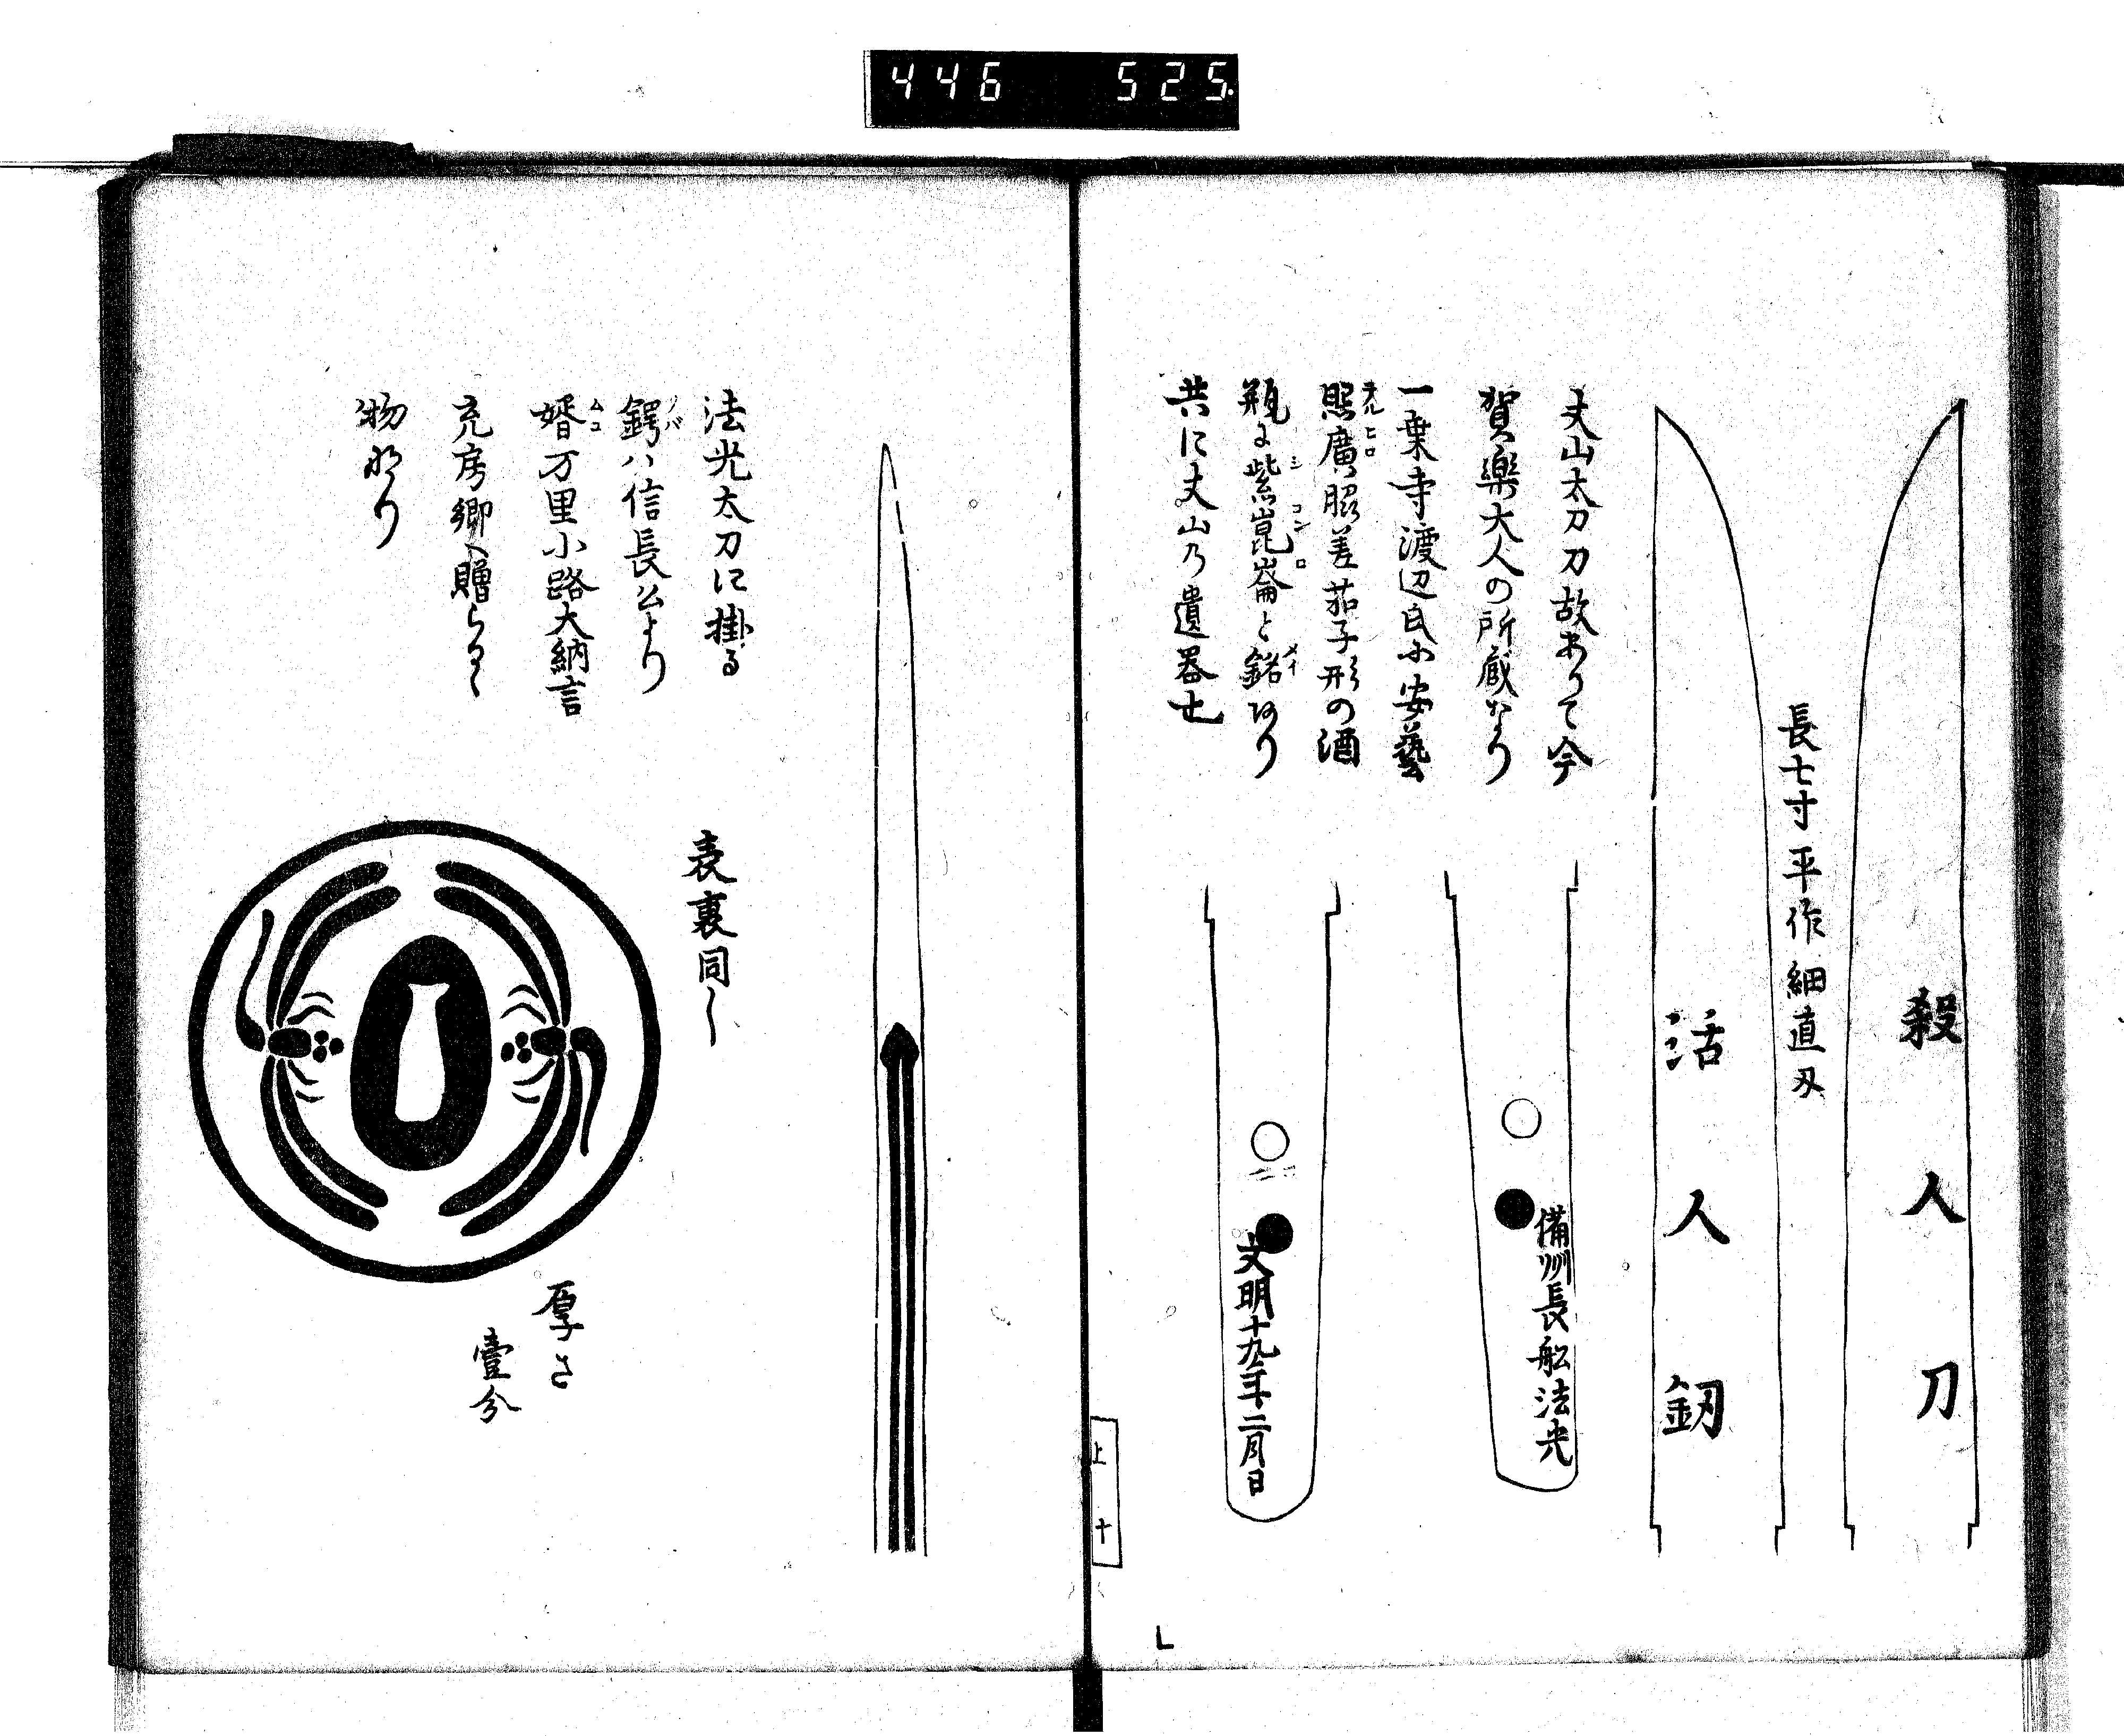 446 525
殺人刀
長七寸平作細直刃
活人釼
丈山太刀刀故ありて今
賀楽大人の所蔵なり
一乗寺渡辺氏に安藝
照廣脇差茄子形の酒
テルヒロ
瓶に紫崑崙と銘あり
シコンロ メイ
共に丈山乃遺器也
備州長舩法光
文明十九年二月日
上 十
法光太刀に掛る
鍔ハ信長公より
ツバ
婿万里小路大納言
ムコ
充房卿へ贈らるゝ
物なり
表裏同し
厚さ
壹分